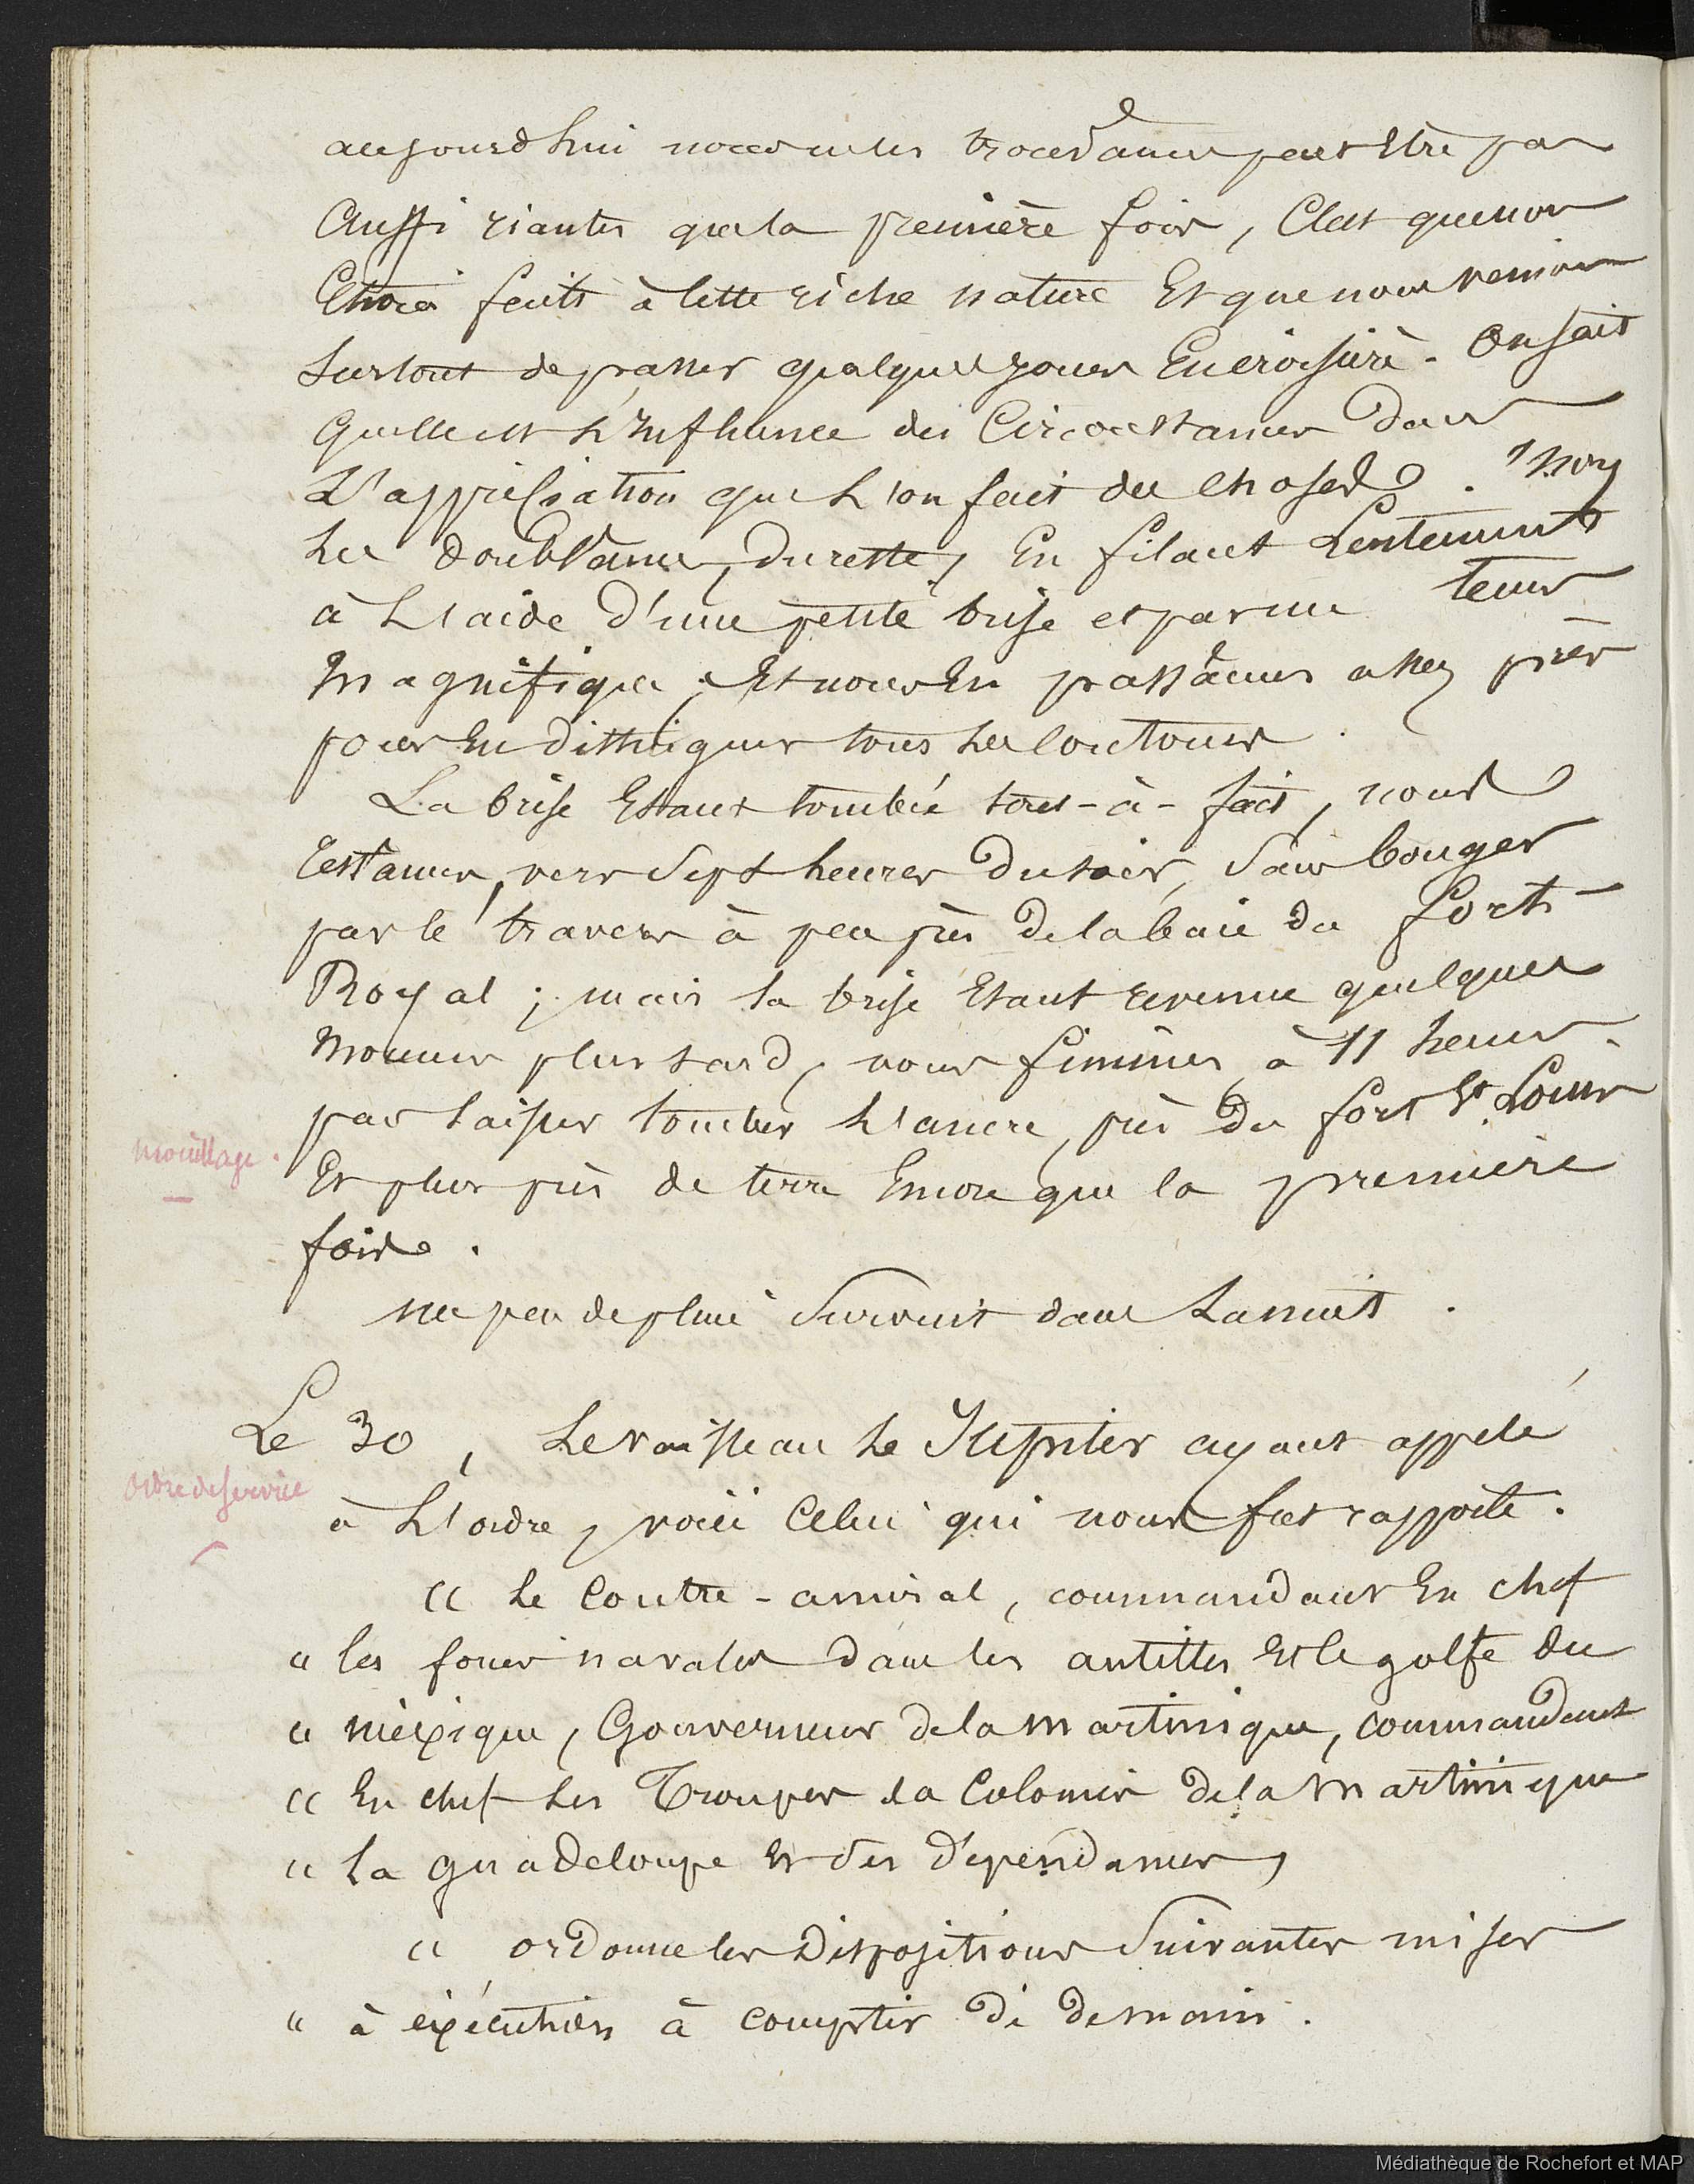 aujourdhui nous ne les trouvâmes peut être pas
Aussi riantes que la première fois, C'est que nous
étions faits à cette riche nature Et que nous venions
surtout de passer quelques jours En croisière. On sait
quelle est L'Influence des Circonstances Dans
L'appréciation que L'on fait des choses. Nous
les doublâmes, du reste, En filant Lentement
à L'aide d'une petite brise et par un tems
Magnifique ; Et nous En passâmes assez près
pour En distinguer tous les contours.
La brise Etant tombée tout-à-fait, nous
restâmes, vers Sept heures Du soir, Sans bouger
par le travers à peu près De la baie du fort-
Royal ; mais la brise Etant revenue quelques
Momens plus tard, nous finimes, à 11 heures.
par laisser tomber L'ancre, près Du fort St. Louis
mouillage.
Et plus près de terre Encore que la première
fois.
un peu de pluie Survint dans La nuit.
Le 30, Le vaisseau le Jupiter ayant appelé
ordre de service
à L'ordre, voici Celui qui nous fut rapporté.
« Le Contre-amiral, commandant En chef
« les forces navales dans les antilles Et le golfe du
« méxique, Gouverneur de la martinique, commandant
« En chef les Troupes la Colonies de la Martinique
« La guadeloupe Et des dépendances,
« ordonne les Dispositions Suivantes mises
« à éxécution à compter de demain.
Médiathèque de Rochefort et MAP